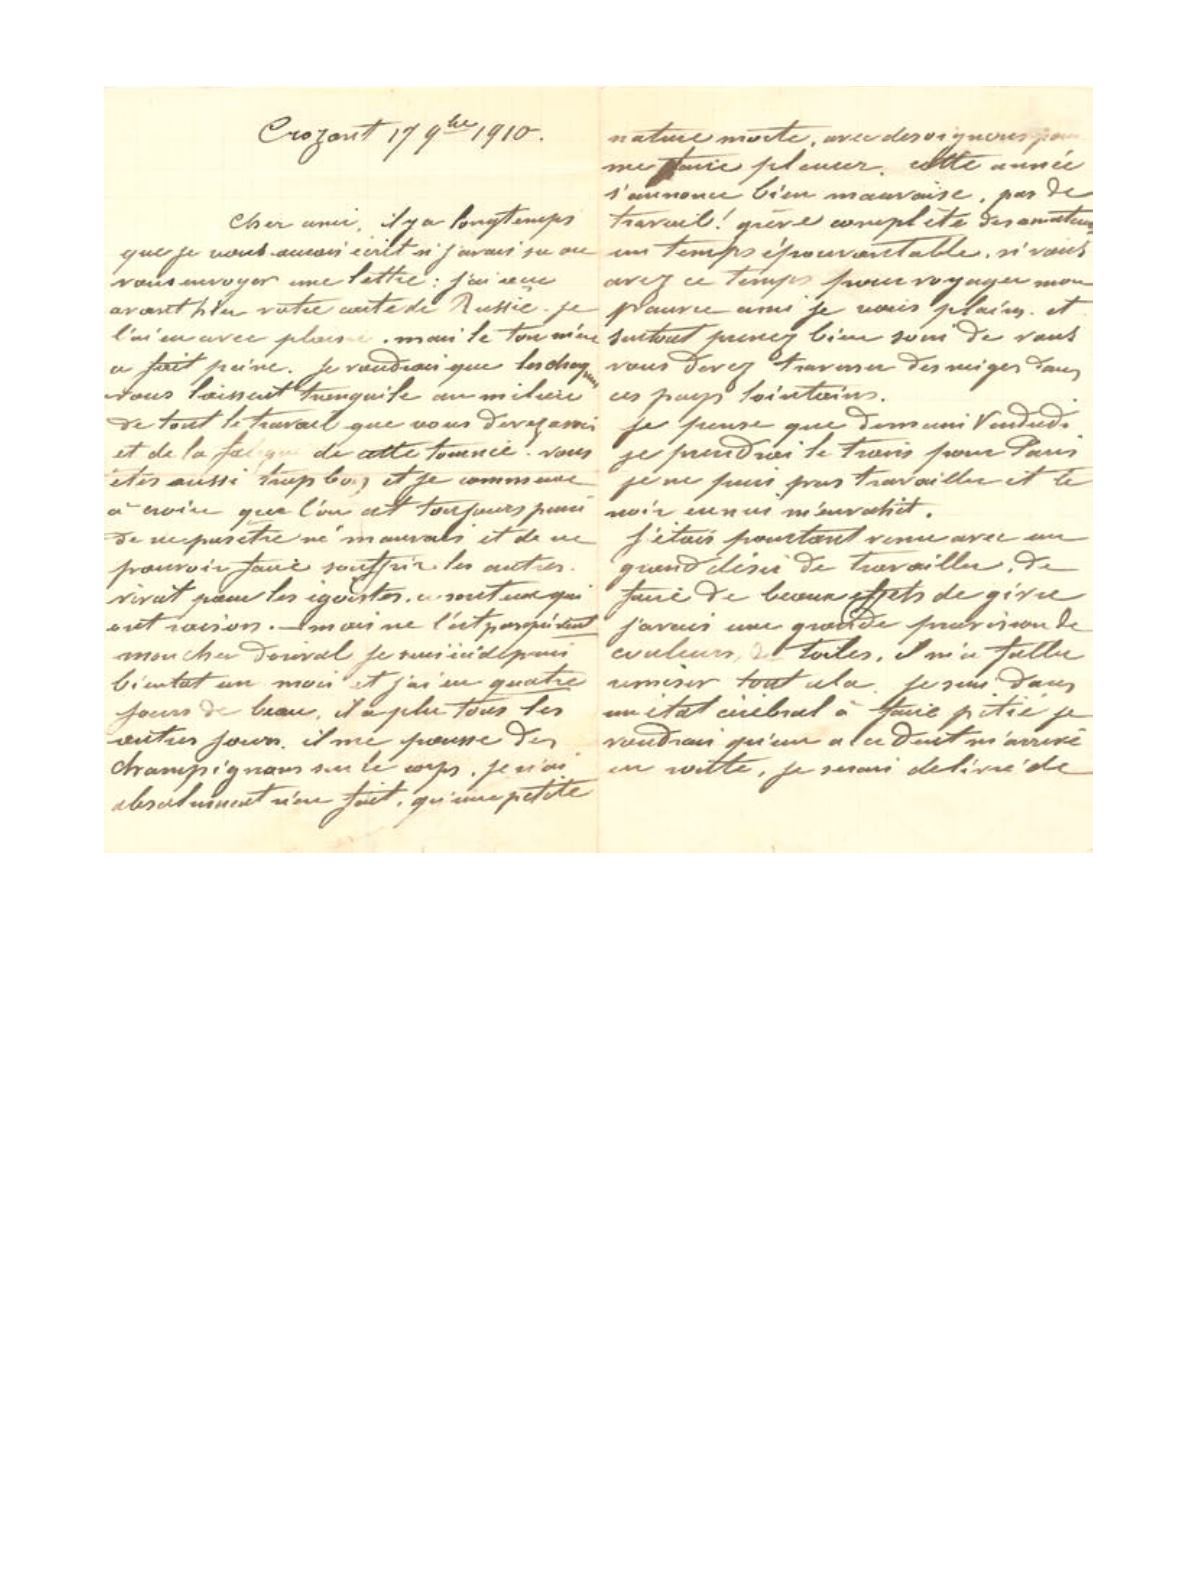 Crozant 17 9bre 1910.
Cher ami, il y a longtemps
que je vous aurais écrit si j'avais su ou
vous envoyer une lettre : j'ai eue
avant hier votre carte de Russie. je
l'ai eu avec plaisir. mais le ton m'en
a fait peine. Je voudrais que les chagrins
vous laissent tranquile au milieu
de tout le travail que vous devez avoir
et de la fatigue de cette tournée. vous
êtes aussi trop bon, et je commence
à croire que l'on est toujours puni
de ne pas être né mauvais et de ne
pouvoir faire souffrir les autres.
vivat pour les égoïstes. ce sont eux qui
ont raison. — mais ne l'est pas qui veut
mon cher Dorival je suis ici depuis
bientot un mois et j'ai eu quatre
jours de beau, il a plu tous les
autres jours. il me pousse des
champignons sur le corps. je n'ai
absolument rien fait, qu'une petite
nature morte, avec des oignons pour
me faire pleurer. cette année
s'annonce bien mauvaise, pas de
travail! grève complète des amateurs
un temps épouvantable. si vous
avez ce temps pour voyager mon
pauvre ami je vous plains. et
surtout prenez bien soin de vous
vous devez traverser des neiges dans
ces pays lointains.
je pense que demain Vendredi
je prendrai le train pour Paris
je ne puis pas travailler et le
noir ennui m'envahit.
J'étais pourtant venu avec un
grand désir de travailler, de
faire de beaux effets de givre
j'avais une grande provision de
couleurs, de toiles, il m'a fallu
remiser tout cela. je suis dans
un état cérébral à faire pitié je
voudrais qu'un accident m'arrive
en route, je serais délivré de